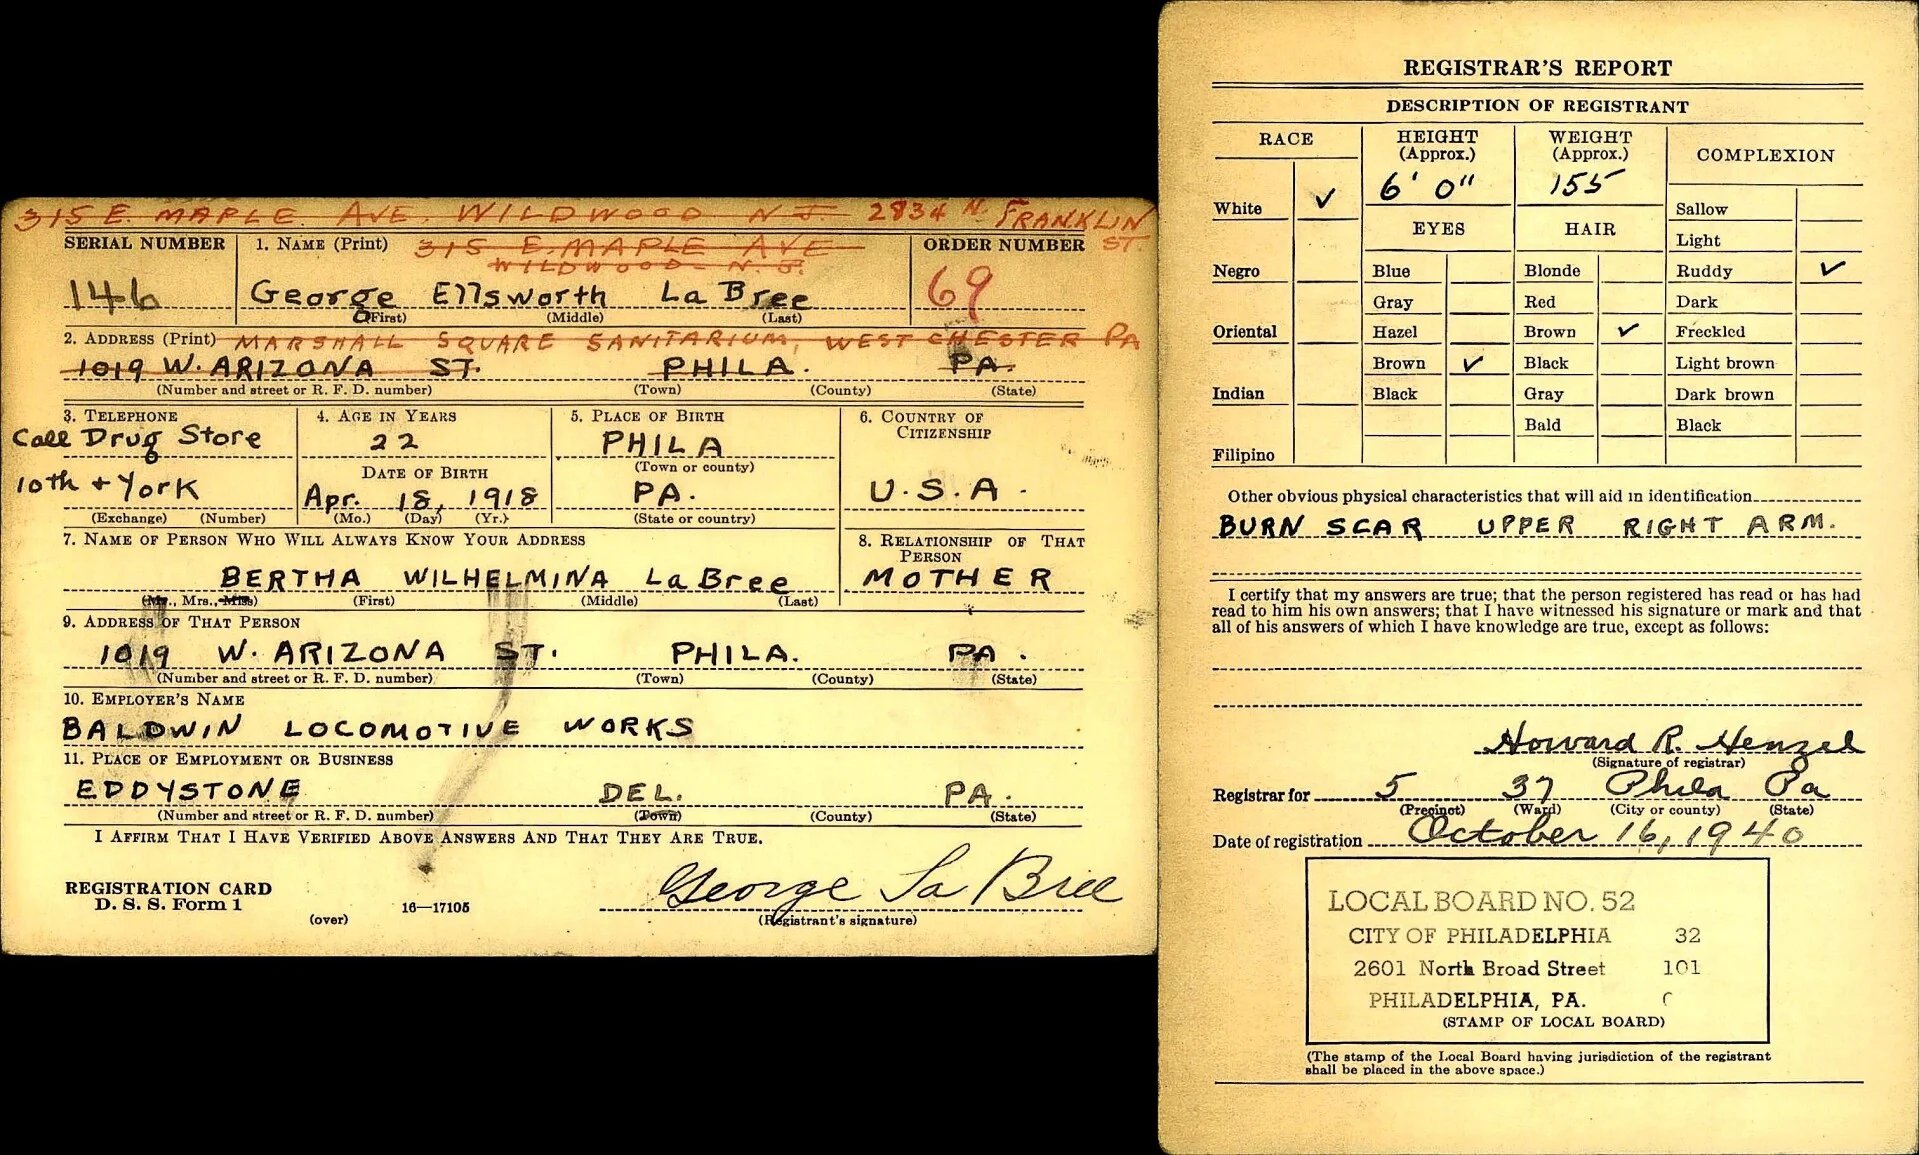 315 E. MAPLE AVE. WILDWOOD N.J. 2834 N. FRANKLIN ST
SERIAL NUMBER 1. NAME (Print) 315 E. MAPLE AVE ORDER NUMBER
WILDWOOD - N.J.
146 George Ellsworth La Bree 69
(First) (Middle) (Last)
2. ADDRESS (Print) MARSHALL SQUARE SANITARIUM, WEST CHESTER PA
1019 W. ARIZONA ST. PHILA. PA.
(Number and street or R. F. D. number) (Town) (County) (State)
3. TELEPHONE 4. AGE IN YEARS 5. PLACE OF BIRTH 6. COUNTRY OF CITIZENSHIP
Call Drug Store 22 PHILA
DATE OF BIRTH (Town or county)
10th + York Apr. 18, 1918 PA. U.S.A.
(Exchange) (Number) (Mo.) (Day) (Yr.) (State or country)
7. NAME OF PERSON WHO WILL ALWAYS KNOW YOUR ADDRESS 8. RELATIONSHIP OF THAT PERSON
BERTHA WILHELMINA La Bree MOTHER
(Mr., Mrs., Miss) (First) (Middle) (Last)
9. ADDRESS OF THAT PERSON
1019 W. ARIZONA ST. PHILA. PA.
(Number and street or R. F. D. number) (Town) (County) (State)
10. EMPLOYER'S NAME
BALDWIN LOCOMOTIVE WORKS
11. PLACE OF EMPLOYMENT OR BUSINESS
EDDYSTONE DEL. PA.
(Number and street or R. F. D. number) (Town) (County) (State)
I AFFIRM THAT I HAVE VERIFIED ABOVE ANSWERS AND THAT THEY ARE TRUE.
REGISTRATION CARD
D. S. S. Form 1 (over) 16—17105
George La Bree
(Registrant's signature)
REGISTRAR'S REPORT
DESCRIPTION OF REGISTRANT
RACE HEIGHT (Approx.) WEIGHT (Approx.) COMPLEXION
6' 0" 155
White ✓ Sallow
EYES HAIR Light
Negro Blue Blonde Ruddy ✓
Gray Red Dark
Oriental Hazel Brown ✓ Freckled
Brown ✓ Black Light brown
Indian Black Gray Dark brown
Bald Black
Filipino
Other obvious physical characteristics that will aid in identification
BURN SCAR UPPER RIGHT ARM.
I certify that my answers are true; that the person registered has read or has had
read to him his own answers; that I have witnessed his signature or mark and that
all of his answers of which I have knowledge are true, except as follows:
Howard R. Henzel
(Signature of registrar)
Registrar for 5 37 Phila Pa
(Precinct) (Ward) (City or county) (State)
Date of registration October 16, 1940
LOCAL BOARD NO. 52
CITY OF PHILADELPHIA 32
2601 North Broad Street 101
PHILADELPHIA, PA.
(STAMP OF LOCAL BOARD)
(The stamp of the Local Board having jurisdiction of the registrant
shall be placed in the above space.)